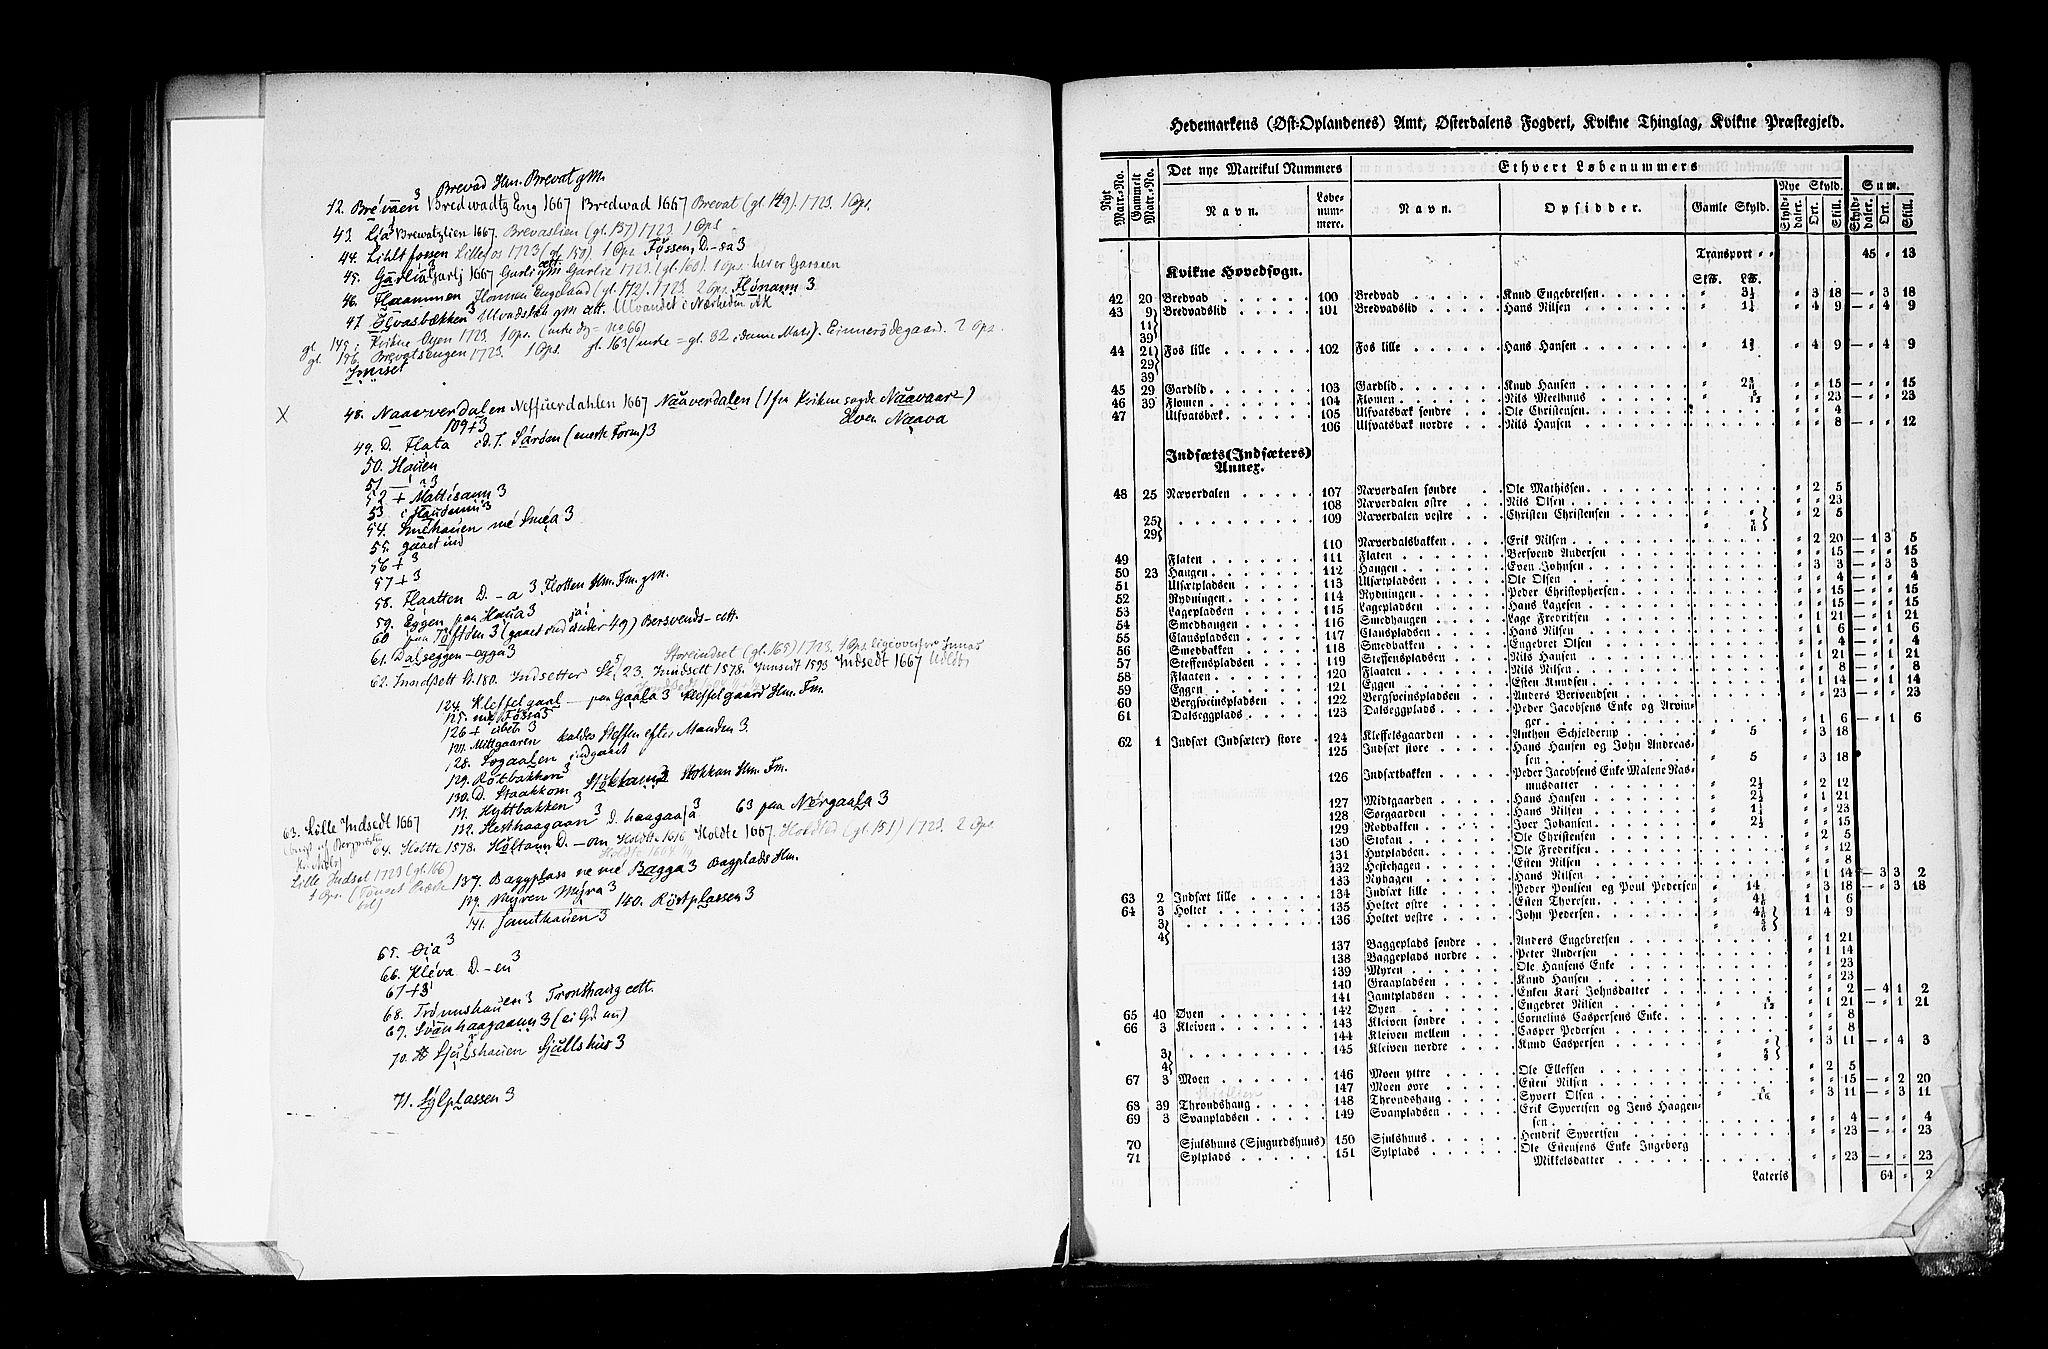 Brevad Hm. Brevat gM.
42. Brévaen 3 Bredwadtz Eng 1667 Bredwad 1667 Brevat (gl. 149). 1723. 1 Ops.
43. Lia 3 Brewatzlien 1667. Brevaslien (gl. 157) 1723 1 Ops
44. Lihlt fossen Lillefos 1723 (gl. 150) 1 Ops. Fössen, D. -sa 3
45. Garlia 3 Garlj 1667 Garli gM att. Garlie 1723. (gl. 160). 1 Ops.
46. Flaammen Flomen Engeland (gl. 172). 1723. 2 Ops. Flömann 3
47. Ølvasbækken 3 Ulvadsbæk gM att. Ulvandet i Nærheden AK
gl. 145: Kvikne Øyen 1723. 1 Ops. (mrk dog = no 66)
gl. 146. Brevatsengen 1723. 1 Ops. gl. 163 (mrk = gl. 32 i denne Matr). Einnersødegaar. 2 Ops.
Innset
X 48. Naaverdalen Neffuerdahlen 1667 Naaverdalen (1 fra Kvikne sagde Naavaar-)
109 + 3 Elven Naava
49. D. Flata i D. 7. Sörden (mærk Form) 3
50. Hauen
51 — 3
52 + Mattisann 3
53
54. Smehauen mé Sméa 3
55. gaaet ind
56 + 3
57 + 3
58. Flaatten D. -a 3 Flotten Hm. Fm. gM.
59. Eggen paa Haua 3
60 paa Töftden 3 (gaaet ind under 49) Bersvends- ett.
61. Dalseggen -egga 3
Storeindset (gl. 165) 1723. 1 Ops.
62. Inndsett D. 180. Indsetter St. 23. Jndsett 1578. Jnnsedt 1593 Indsedt 1667
124. Kleffelgaal — paa Gaala 3 Kleffelgaard Hm. Fm.
125. mé Fössa 3
126 + 3
127. Mittgaaren kaldes Steffen efter Manden 3.
128. Sogaalen indgaaet
129. Röbakken 3
130. D. Staakkom Stökkan 3 Stokkan Hm. Fm.
131. Hyttbakken 3
132. Hesthaagaan 3 D. haagaa 3 63 paa Nérgaala 3
63. Lille Indsedt 1667
64. Holtte 1578. Höltann D. -om Holdtte 1616 Holdte 1667. Holdted (gl. 151) 1723. 2 Ops.
Lille Indset 1723 (gl. 166)
137. Baggplass ne mé Bagga 3 Bagplads Hm.
139. Myren Myra 3 140. Röstplassen 3
141. Jamthauen 3
65. Øia 3
66. Kléva D. -en 3
67 + 3
68. Trömnshauen 3 Tronshaug ett.
69. Svanhaagaann 3
70. Sjulshauen Sjullshus 3
71. Sylplassen 3
Hedemarkens (Øst-Oplandenes) Amt, Østerdalens Fogderi, Kvikne Thinglag, Kvikne Præstegjeld.
Nyt Matr.-No. Gammelt Matr.-No. Det nye Matrikul Nummers Ethvert Løbenummers
Nye Skyld. Sum.
Navn. Løbe-nummere. Navn. Opsidder. Gamle Skyld. Skylddaler. Ort. Skill. Skylddaler. Ort. Skill.
Transport " " 45 " 13
Kvikne Hovedsogn. Sk℔. L℔.
42 20 Bredvad 100 Bredvad Knud Engebretsen " 3½ " 3 18 — " 3 18
43 9 Bredvadslid 101 Bredvadslid Hans Nilsen " 1¼ " 4 9 — " 4 9
11
39
44 21 Fos lille 102 Fos lille Hans Hansen " 4 9 — " 4 9
29
39
45 29 Gardlid 103 Gardlid Knud Hansen " " 15 — " " 15
46 39 Flomen 104 Flomen Nils Meelhuus " " 23 — " " 23
47 Ulsvatsbæk 105 Ulsvatsbæk søndre Ole Christensen " " 4
106 Ulsvatsbæk nordre Nils Hansen " " 8 — " " 12
Indsæts (Indsæters)
Annex.
48 25 Næverdalen 107 Næverdalen søndre Ole Mathissen " 2 5
108 Næverdalen østre Nils Olsen " " 23
25 109 Næverdalen vestre Christen Christensen " 2 5
29
110 Næverdalsbakken Erik Nilsen " 2 20 — 1 3 5
49 Flaten 111 Flaten Bersvend Andersen " " 15 — " " 15
50 23 Haugen 112 Haugen Even Johnsen " 3 3 — " 3 3
51 Ulsætpladsen 113 Ulsætpladsen Ole Olsen " " 4 — " " 4
52 Rydningen 114 Rydningen Peder Christophersen " " 15 — " " 15
53 Lagepladsen 115 Lagepladsen Hans Lagesen " " 15 — " " 15
54 Smedhaugen 116 Smedhaugen Lage Fredritsen " 1 21 — " 1 21
55 Clauspladsen 117 Clauspladsen Hans Nilsen " 1 6 — " 1 6
56 Smedbakken 118 Smedbakken Engebret Olsen " " 4 — " " 4
57 Steffenspladsen 119 Steffenspladsen Nils Hansen " 1 21 — " 1 21
58 Flaaten 120 Flaaten Nils Nilsen " " 8 — " " 8
59 Eggen 121 Eggen Esten Knudsen " 1 14 — " 1 14
60 Bergsveinspladsen 122 Bergsveinspladsen Anders Bersvendsen " " 23 — " " 23
61 Dalseggplads 123 Dalseggplads Peder Jacobsens Enke og Arvin-
ger " 1 6 — " 1 6
62 1 Indsæt (Indsæter) store 124 Kleffelsgaarden Anthon Schjelderup " 5 " 3 18
125 Indsæt store Hans Hansen og John Andreas-
sen " 5 " 3 18
126 Indsætbakken Peder Jacobsens Enke Malene Ras-
musdatter " 2½ " 2 12
127 Midtgaarden Hans Hansen " 2½ " 1 21
128 Sørgaarden Hans Nilsen " " 23
129 Rødbakken Iver Johansen " 2½ " " 15
130 Stokan Ole Christensen " 2 5
131 Hytpladsen Ole Fredriksen " " 12
132 Hestehagen Esten Nilsen " " 8
133 Nyhagen Hans Nilsen " 1 14 — 3 3 2
63 2 Indsæt lille 134 Indsæt lille Peder Poulsen og Poul Pedersen " 14 " 3 18 — " 3 18
64 3 Holtet 135 Holtet østre Esten Thoresen " 1 1 6
3 136 Holtet vestre John Pedersen " 1 4 9
4
137 Baggeplads søndre Anders Engebretsen " 1 21
138 Baggeplads nordre Peter Andersen " 1 14
139 Myren Ole Hansens Enke " " 23
140 Graapladsen Knud Hansen " " 23
141 Jamtpladsen Enken Kari Johnsdatter " " 2 — 4 1 2
65 40 Øyen 142 Øyen Engebret Nilsen " 1 21 — " 1 21
66 3 Kleiven 143 Kleiven søndre Cornelius Caspersens Enke " " 8
144 Kleiven mellem Casper Pedersen " " 8
3 145 Kleiven nordre Knud Caspersen " 3 11 — " 4 3
4
67 3 Moen 146 Moen yttre Ole Ellefsen " 2 5
147 Moen øvre Esten Nilsen " " 15 — " 2 20
68 39 Throndshaug 148 Throndshaug Syvert Olsen " 3 11 — " 3 11
69 3 Svanpladsen 149 Svanpladsen Erik Syvertsen og Jens Haagen-
sen " " 4 — " " 4
70 Sjulshuus (Sjugurdshuus) 150 Sjulshuus Hendrik Syvertsen " " 23 — " " 23
71 Sylplads 151 Sylplads Ole Estensens Enke Ingeborg
Mikkelsdatter " " 23 — " " 23
Lateris 64 " 2